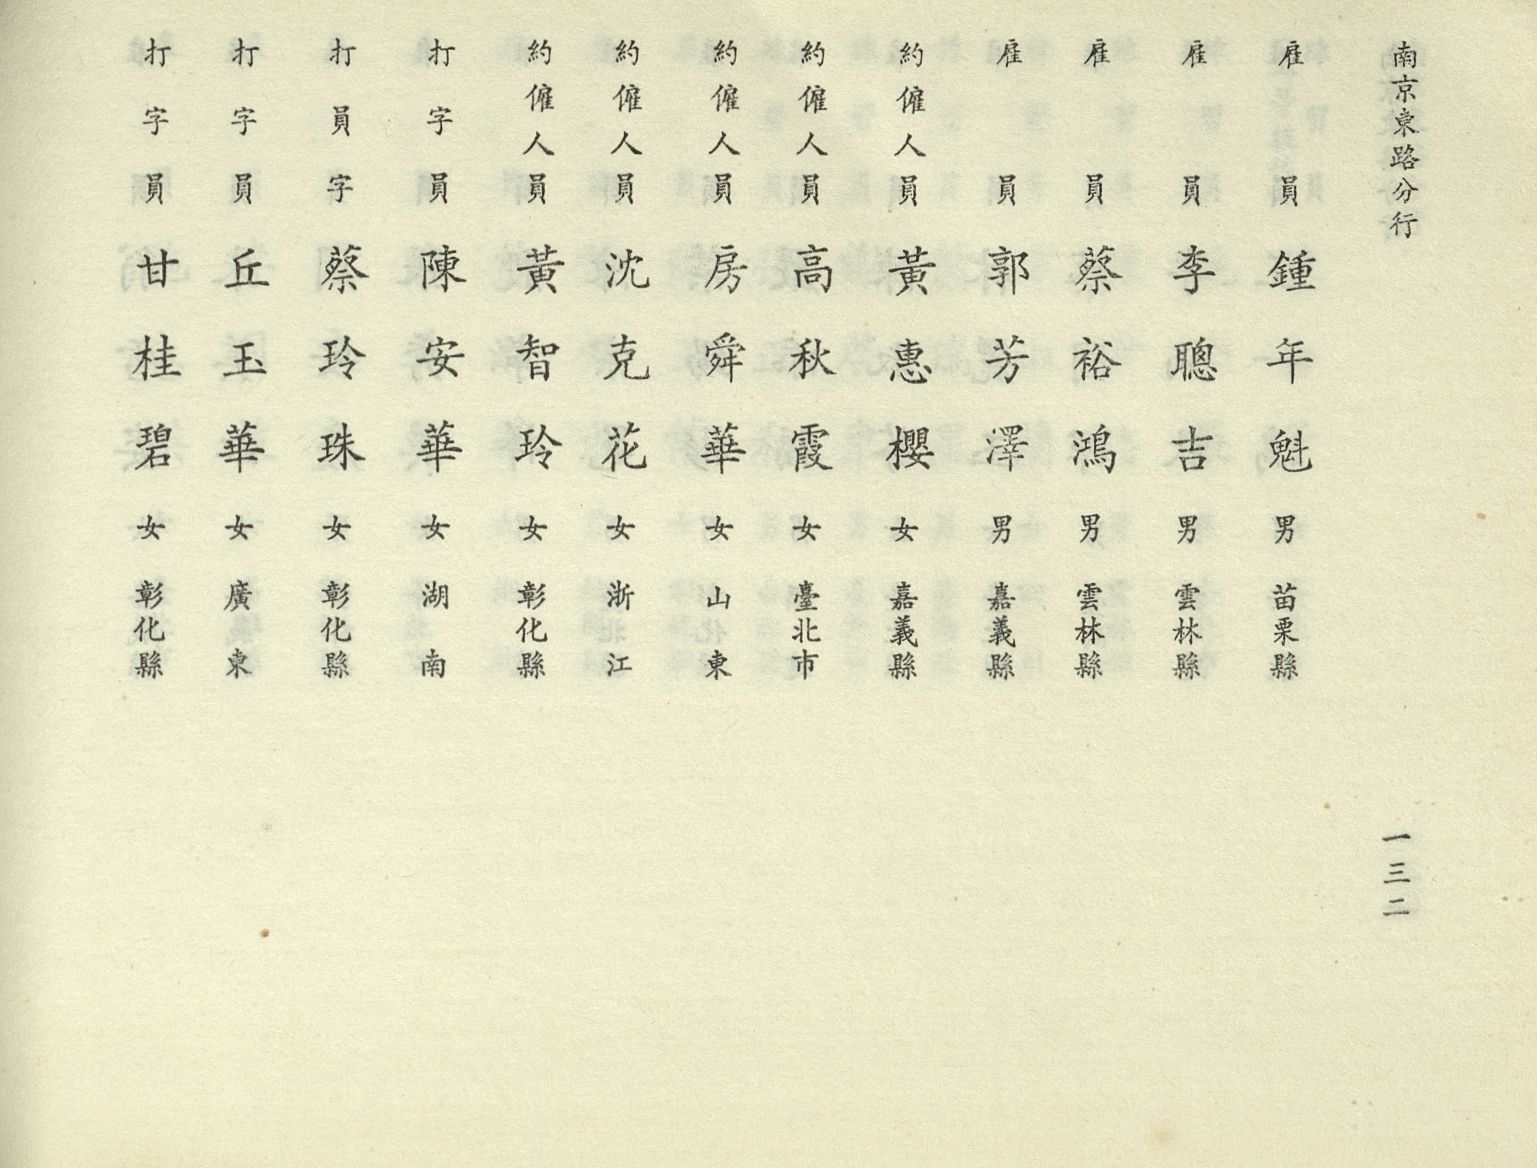 南京東路分行 一三二
雇員 鍾年魁 男 苗栗縣
雇員 李聰吉 男 雲林縣
雇員 蔡裕鴻 男 雲林縣
雇員 郭芳澤 男 嘉義縣
約僱人員 黃惠櫻 女 嘉義縣
約僱人員 高秋霞 女 臺北市
約僱人員 房舜華 女 山東
約僱人員 沈克花 女 浙江
約僱人員 黃智玲 女 彰化縣
打字員 陳安華 女 湖南
打員字 蔡玲珠 女 彰化縣
打字員 丘玉華 女 廣東
打字員 甘桂碧 女 彰化縣